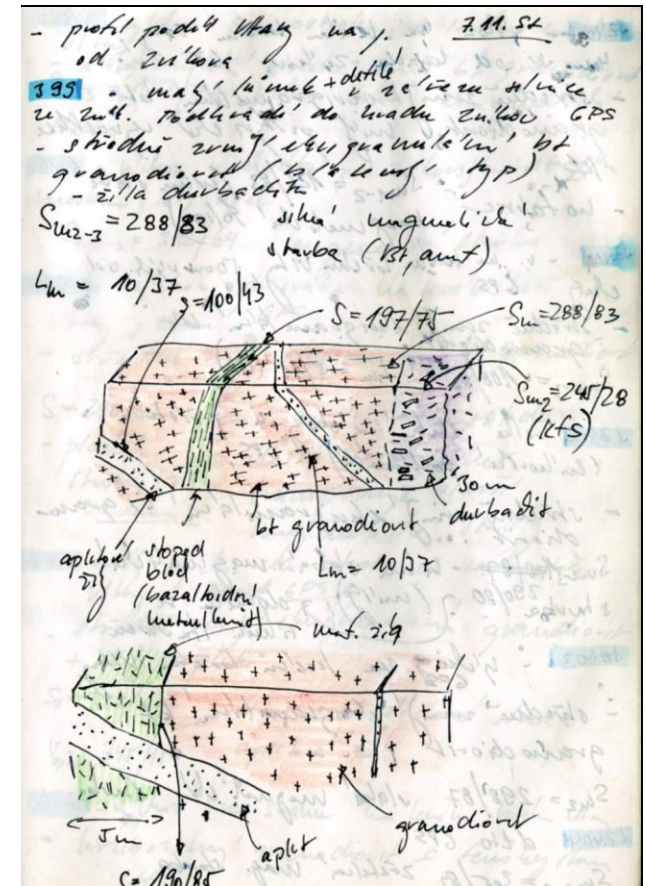 - profil podél Vltavy na j. 7.11. St
od Zvíkova
395 malý lůmek + defilé v zářezu silnice
ze Zvík. Podhradí do hradu Zvíkov GPS
- středně zrnitý ekvigranulární bt
granodiorit (typ)
- žíla durbachitu
Sm2-3 = 288/83 silná magmatická
stavba (bt, amf)
Lm = 10/37
S=100/43
S = 197/75
Sm=288/83
Sm2=245/28
(kfs)
30 m
durbachit
bt granodiorit
aplitové
stoped
blok
(bazaltoidní
metavulkanit)
Lm = 10/37
maf. žíly
5m
aplit
granodiorit
S= 190/85